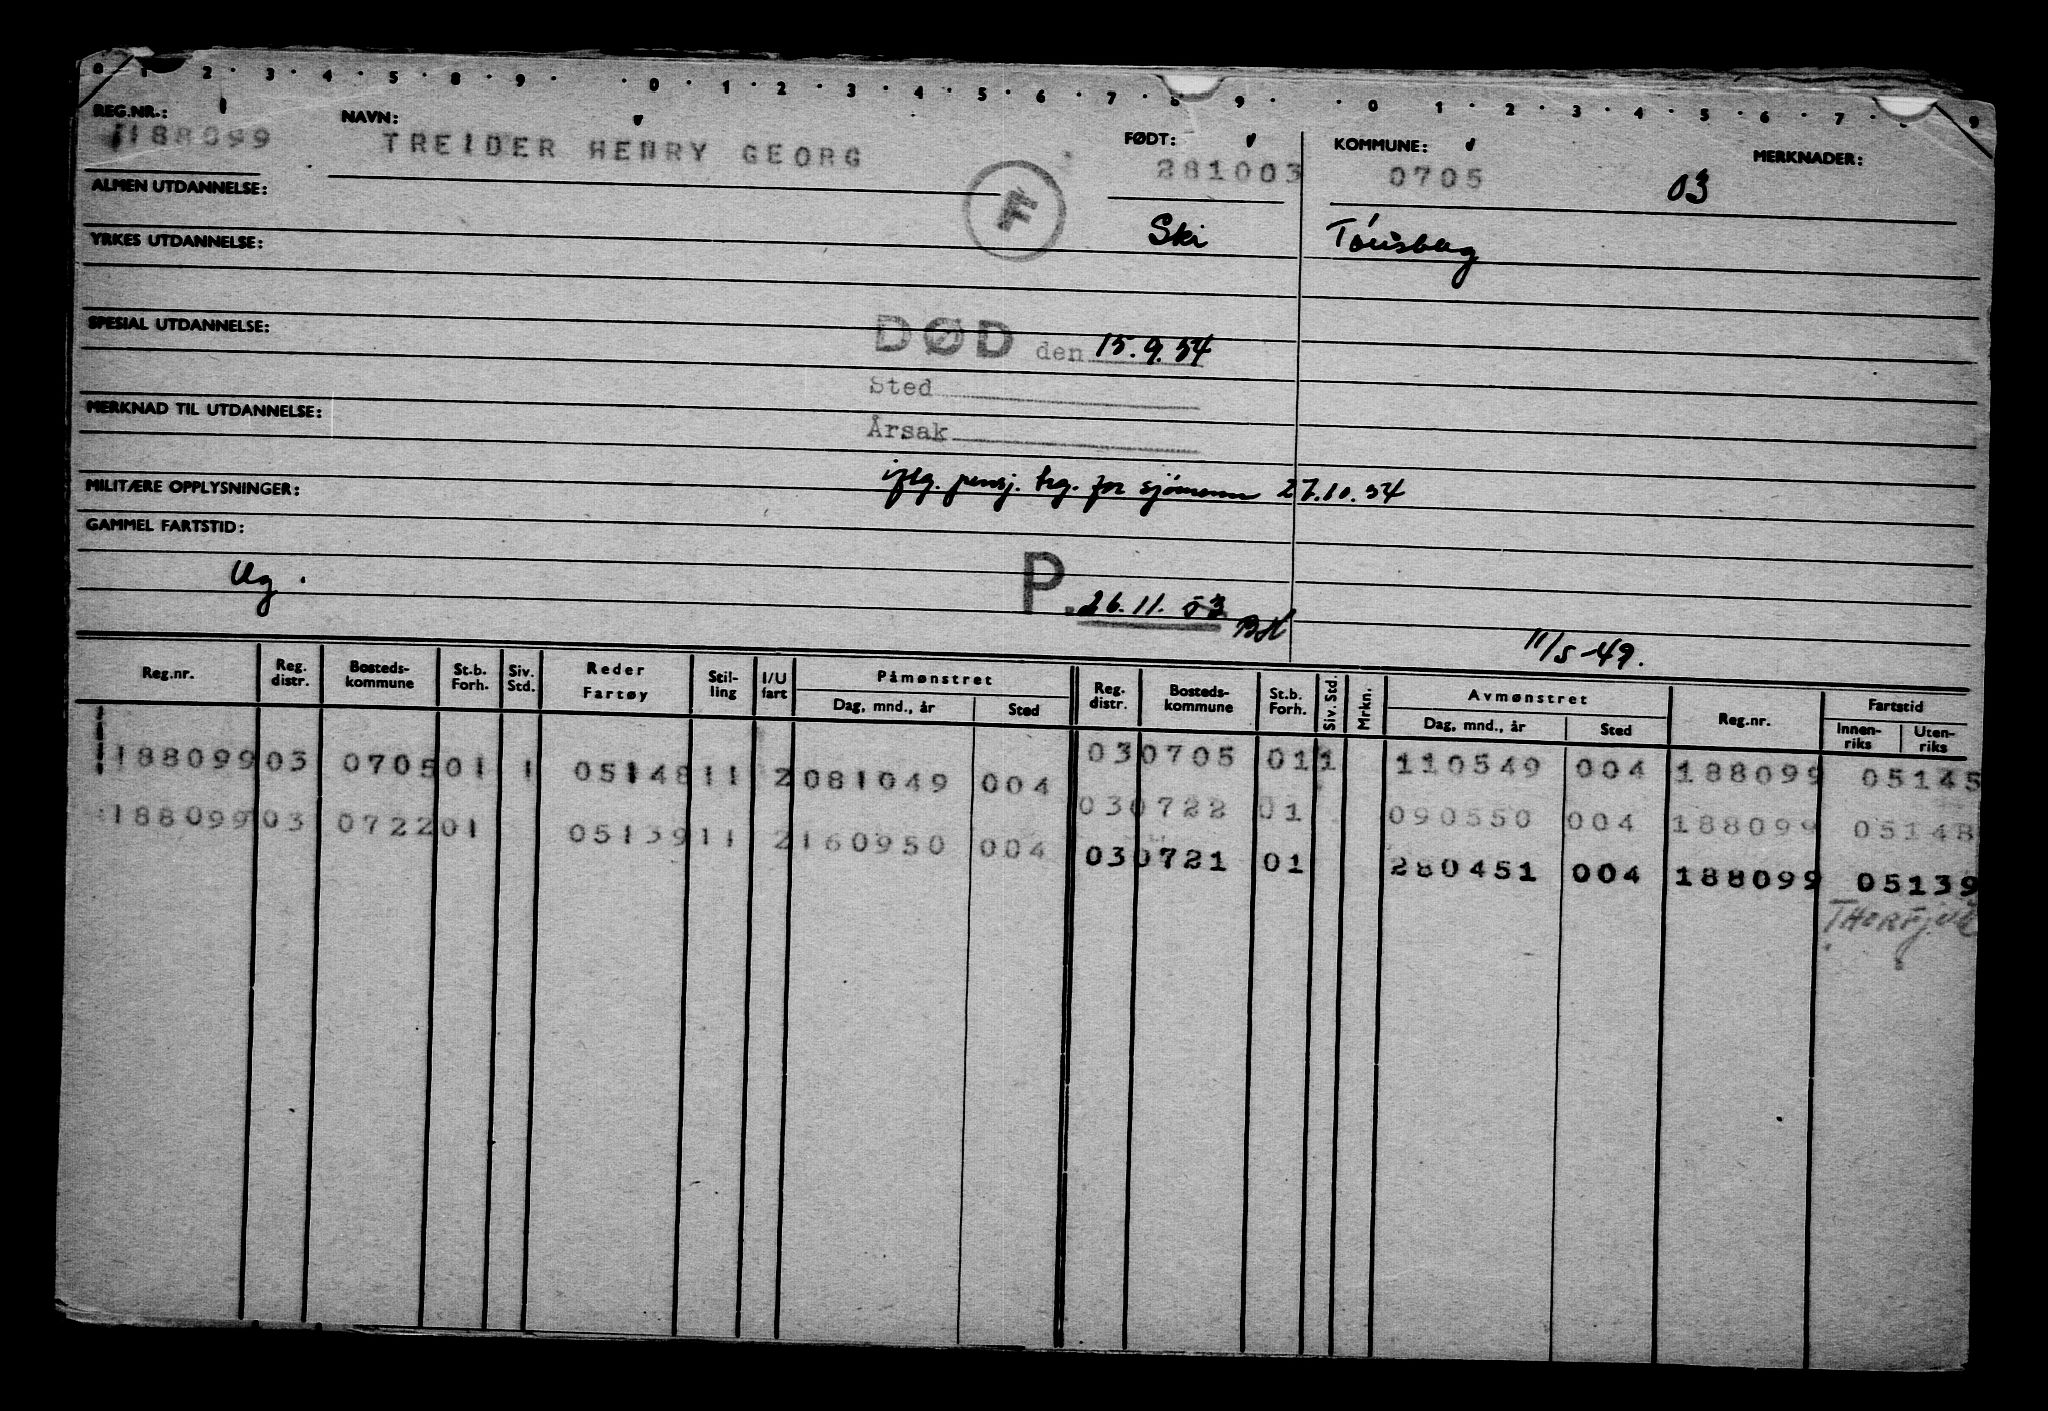 0 1 2 3 4 5 8 9 0 1 2 3 4 5 6 7 8 9 0 1 2 3 4 5 6 7 8 9
REG.NR.: NAVN: FØDT: KOMMUNE: MERKNADER:
188099 TREIDER HENRY GEORG 281003 0705 03
ALMEN UTDANNELSE: F
Ski Tönsberg
YRKES UTDANNELSE:
SPESIAL UTDANNELSE:
DØD den 15.9.54
Sted
MERKNAD TIL UTDANNELSE:
Årsak
MILITÆRE OPPLYSNINGER: iflg. pensj. trg. for sjömenn 27.10.54
GAMMEL FARTSTID:
Ug.
P. 26.11.53 BH
11/5-49.
Reg.nr. Reg. distr. Bosteds-kommune St.b. Forh. Siv. Std. Reder Fartøy Stil-ling I/U fart Påmønstret Dag, mnd., år Sted Reg. distr. Bosteds-kommune St.b. Forh. Siv. Std. Mrkn. Avmønstret Dag, mnd., år Sted Reg.nr. Fartstid Innen-riks Uten-riks
030705 011 110549 004 188099 05145
188099 03 0705 01 1 05148 11 2 081049 004
030722 01 090550 004 188099 05148
188099 03 0722 01 05139 11 2 160950 004
030721 01 280451 004 188099 05139